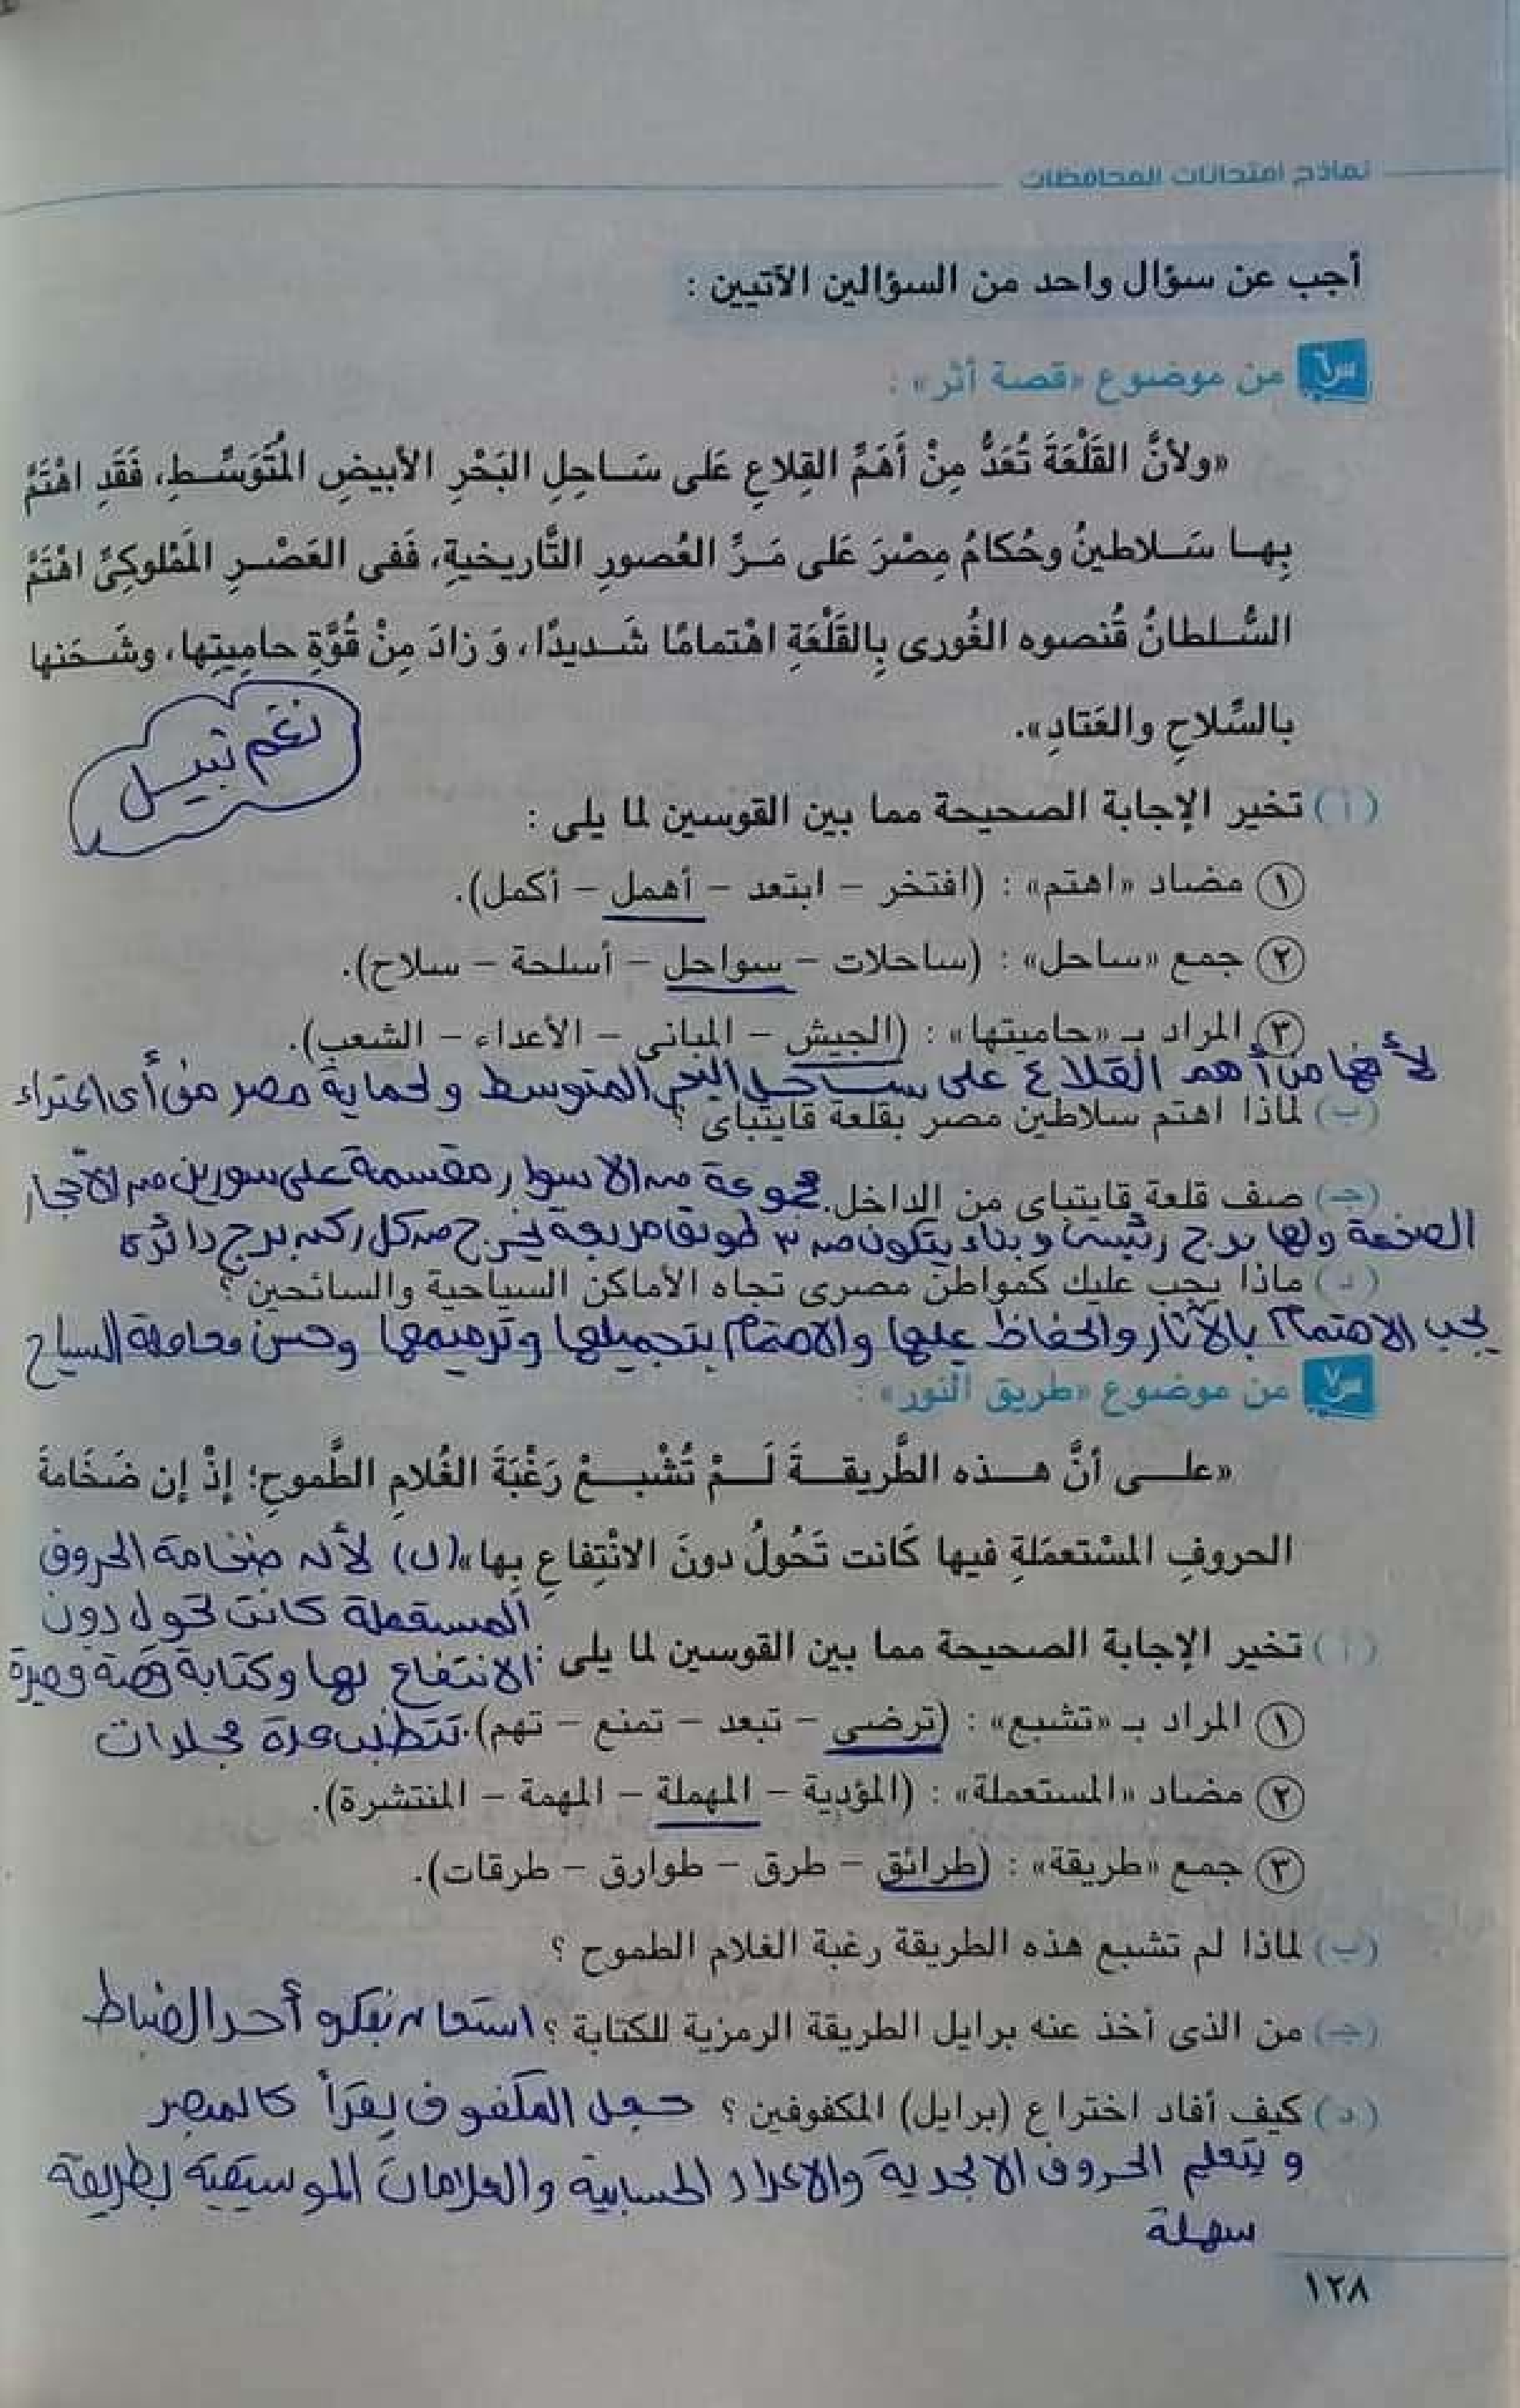 نماذج امتحانات المحافظات
أجب عن سؤال واحد من السؤالين الآتيين :
س٦ من موضوع «قصة أثر» :
«ولأنَّ القَلْعَةَ تُعَدُّ مِنْ أَهَمِّ القِلاعِ عَلى سَاحِلِ البَحْرِ الأبيضِ المُتَوَسِّطِ، فَقَدِ اهْتَمَّ
بِها سَلاطينُ وحُكامُ مِصْرَ عَلى مَرِّ العُصورِ التَّاريخيةِ، فَفى العَصْرِ المَمْلوكِىِّ اهْتَمَّ
السُّلطانُ قُنصوه الغُورى بِالقَلْعَةِ اهْتمامًا شَديدًا، وَ زادَ مِنْ قُوَّةِ حامِيتِها، وشَحَنها
بالسِّلاحِ والعَتادِ».
نغم نبيل
(أ) تخير الإجابة الصحيحة مما بين القوسين لما يلى :
١ مضاد «اهتم» : (افتخر – ابتعد – أهمل – أكمل).
٢ جمع «ساحل» : (ساحلات – سواحل – أسلحة – سلاح).
٣ المراد بـ «حاميتها» : (الجيش – المبانى – الأعداء – الشعب).
لأنها من أهم القلاع على ساحل البحر المتوسط ولحماية مصر من أى اعتداء
(ب) لماذا اهتم سلاطين مصر بقلعة قايتباى ؟
(جـ) صف قلعة قايتباى من الداخل. مجموعة من الاسوار مقسمة على سورين من الأحجار
الضخمة ولها برج رئيسى وبناء يتكون من ٣ طوابق مربعة يخرج من كل ركن برج دائرى
(د) ماذا يجب عليك كمواطن مصرى تجاه الأماكن السياحية والسائحين ؟
يجب الاهتمام بالآثار والحفاظ عليها والاهتمام بتجميلها وترميمها وحسن معاملة السياح
س٧ من موضوع «طريق النور» :
«على أنَّ هذه الطَّريقةَ لَمْ تُشْبِعْ رَغْبَةَ الغُلامِ الطَّموحِ؛ إذْ إن ضَخَامةَ
الحروفِ المسْتعمَلةِ فيها كَانت تَحُولُ دونَ الانْتِفاعِ بِها» (ب) لأن ضخامة الحروف
المستعملة كانت تحول دون
(أ) تخير الإجابة الصحيحة مما بين القوسين لما يلى :
الانتفاع بها وكتابة قصة قصيرة
١ المراد بـ «تشبع» : (ترضى – تبعد – تمنع – تهم). تتطلب عدة مجلدات
٢ مضاد «المستعملة» : (المؤدية – المهملة – المهمة – المنتشرة).
٣ جمع «طريقة» : (طرائق – طرق – طوارق – طرقات).
(ب) لماذا لم تشبع هذه الطريقة رغبة الغلام الطموح ؟
(جـ) من الذى أخذ عنه برايل الطريقة الرمزية للكتابة ؟ أحد الضباط
(د) كيف أفاد اختراع (برايل) المكفوفين ؟ جعل المكفوف يقرأ كالمبصر
ويتعلم الحروف الابجدية والاعداد الحسابية والعلامات الموسيقية بطريقة
سهلة
١٢٨